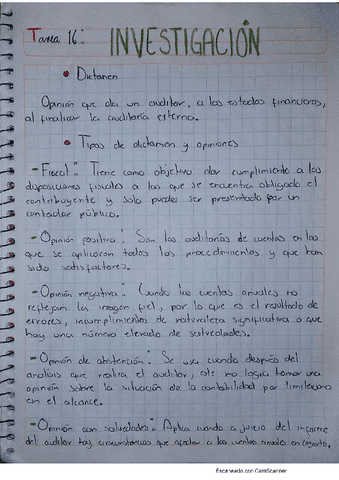 Tarea 16: INVESTIGACIÓN
• Dictamen
Opinión que da un auditor, a los estados financieros,
al finalizar la auditoría externa.
• Tipos de dictamen y opiniones
- Fiscal: Tiene como objetivo dar cumplimiento a las
disposiciones fiscales a las que se encuentra obligado el
contribuyente y solo puede ser presentado por un
contador público.
- Opinión positiva: Son las auditorías de cuentas en las
que se aplicaron todos los procedimientos y que han
sido satisfactores.
- Opinión negativa: Cuando las cuentas anuales no
reflejan la imagen fiel, por lo que es el resultado de
errores, incumplimientos de naturaleza significativa o que
hay una número elevado de salvedades.
- Opinión de abstención: Se usa cuando después del
análisis que realiza el auditor, este no logra tomar una
opinión sobre la situación de la contabilidad por limitaciones
en el alcance.
- Opinión con salvedades: Aplica cuando a juicio del informe
del auditor hay circunstancias que afectan a las cuentas
Escaneado con CamScanner